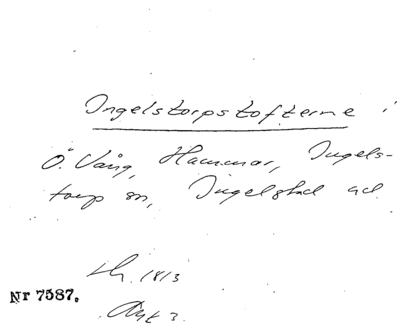 Ingelstorpstofterne i
Ö. Vång, Hammar, Ingels-
torp sn, Ingelstad hd
1813
Nr 7587.
Akt 3.